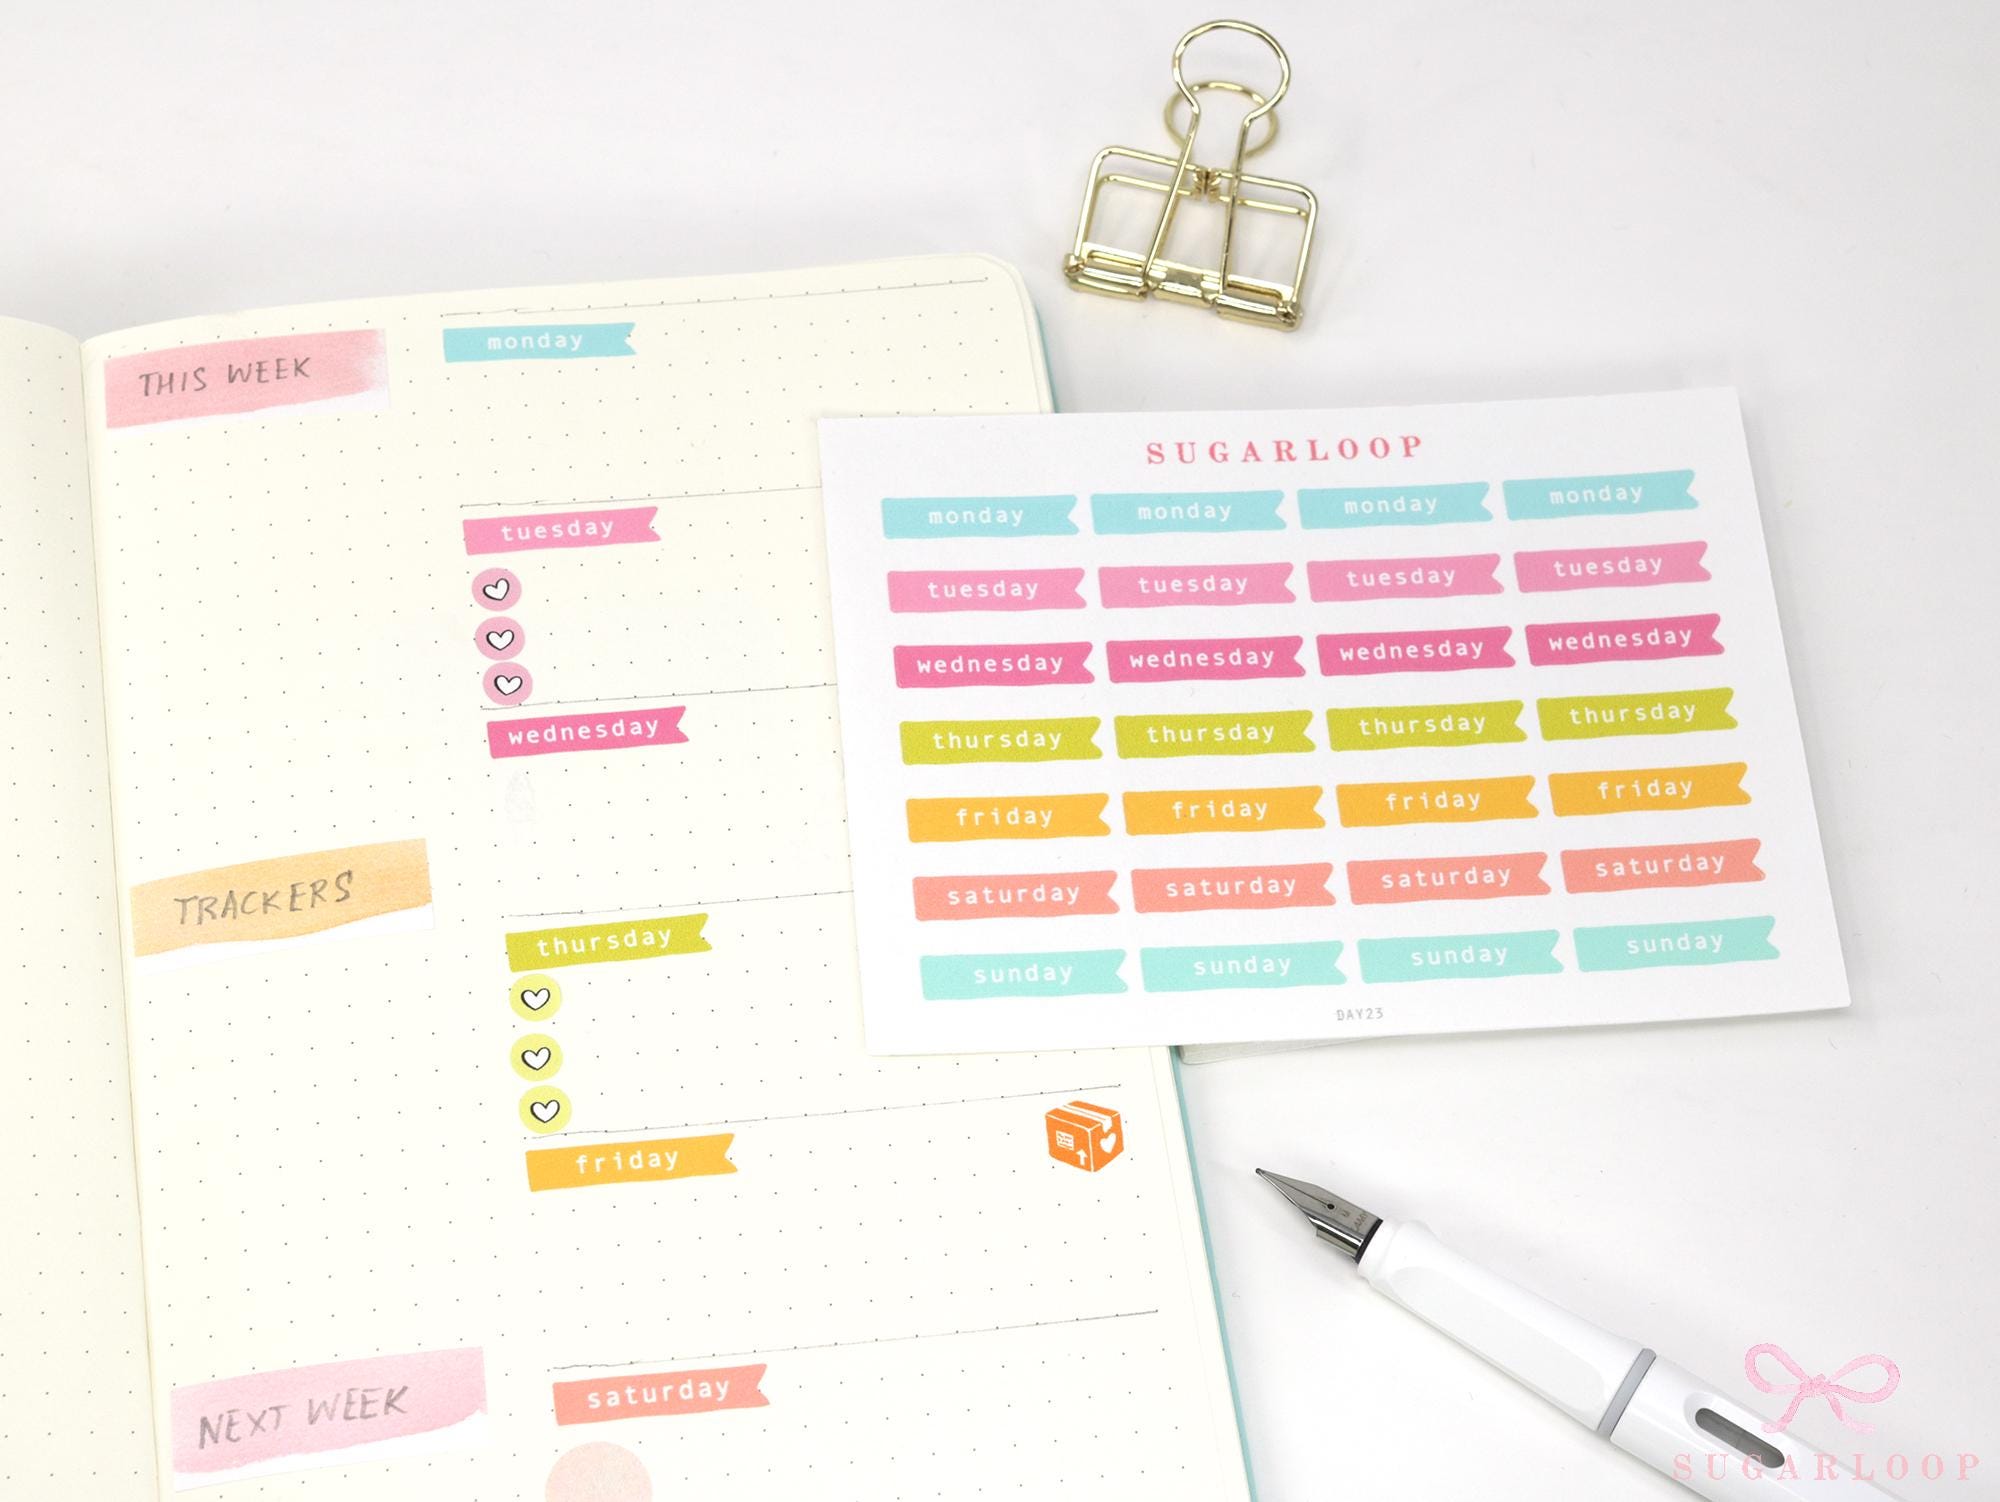 THIS WEEK
monday
tuesday
wednesday
TRACKERS
thursday
friday
NEXT WEEK
saturday
SUGARLOOP
monday monday monday monday
tuesday tuesday tuesday tuesday
wednesday wednesday wednesday wednesday
thursday thursday thursday thursday
friday friday friday friday
saturday saturday saturday saturday
sunday sunday sunday sunday
DAY23
M
LAMY
SUGARLOOP